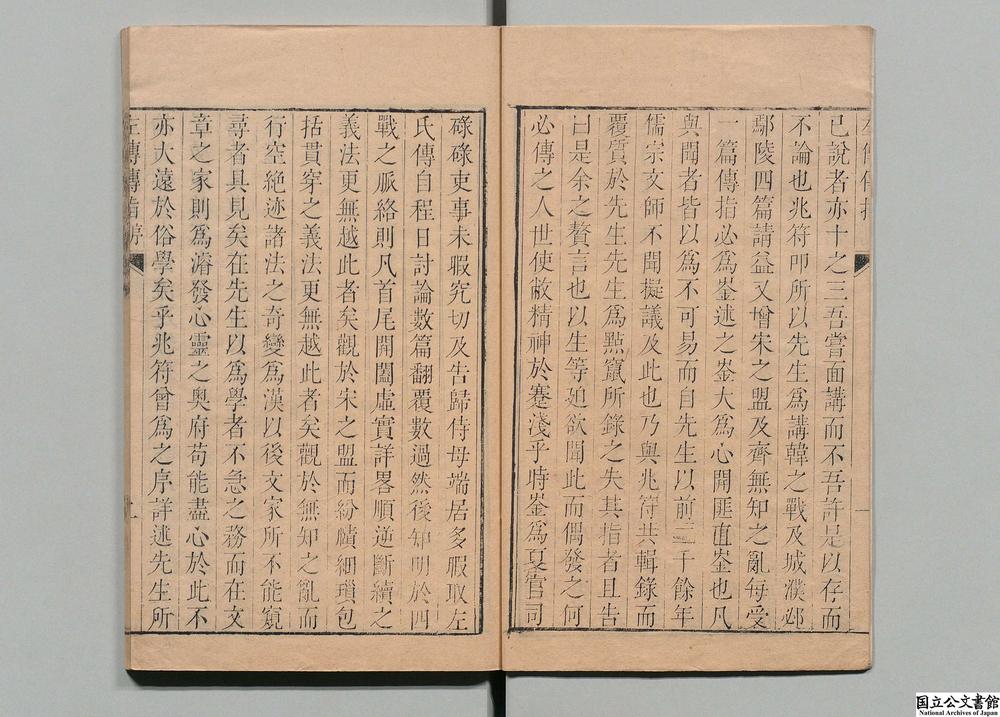 已說者亦十之三吾嘗面講而不吾許是以存而
不論也兆符叩所以先生為講韓之戰及城濮邲
鄢陵四篇請益又增宋之盟及齊無知之亂每受
一篇傳指必為崟述之崟大為心開匪直崟也凡
與聞者皆以為不可易而自先生以前二千餘年
儒宗文師不聞擬議及此也乃與兆符共輯錄而
覆質於先生先生為點竄所錄之失其指者且告
曰是余之贅言也以生等廹欲聞此而偶發之何
必傳之人世使敝精神於蹇淺乎時崟為夏官司
一
碌碌吏事未暇究切及告歸侍母端居多暇取左
氏傳自程日討論數篇翻覆數過然後知明於四
戰之脈絡則凡首尾開闔虛實詳畧順逆斷續之
義法更無越此者矣觀於宋之盟而紛賾細瑣包
括貫穿之義法更無越此者矣觀於無知之亂而
行空絕迹諸法之奇變為漢以後文家所不能窺
尋者具見矣在先生以為學者不急之務而在文
章之家則為濬發心靈之奧府苟能盡心於此不
亦大遠於俗學矣乎兆符曾為之序詳述先生所
左傳傳指序
国立公文書館
National Archives of Japan